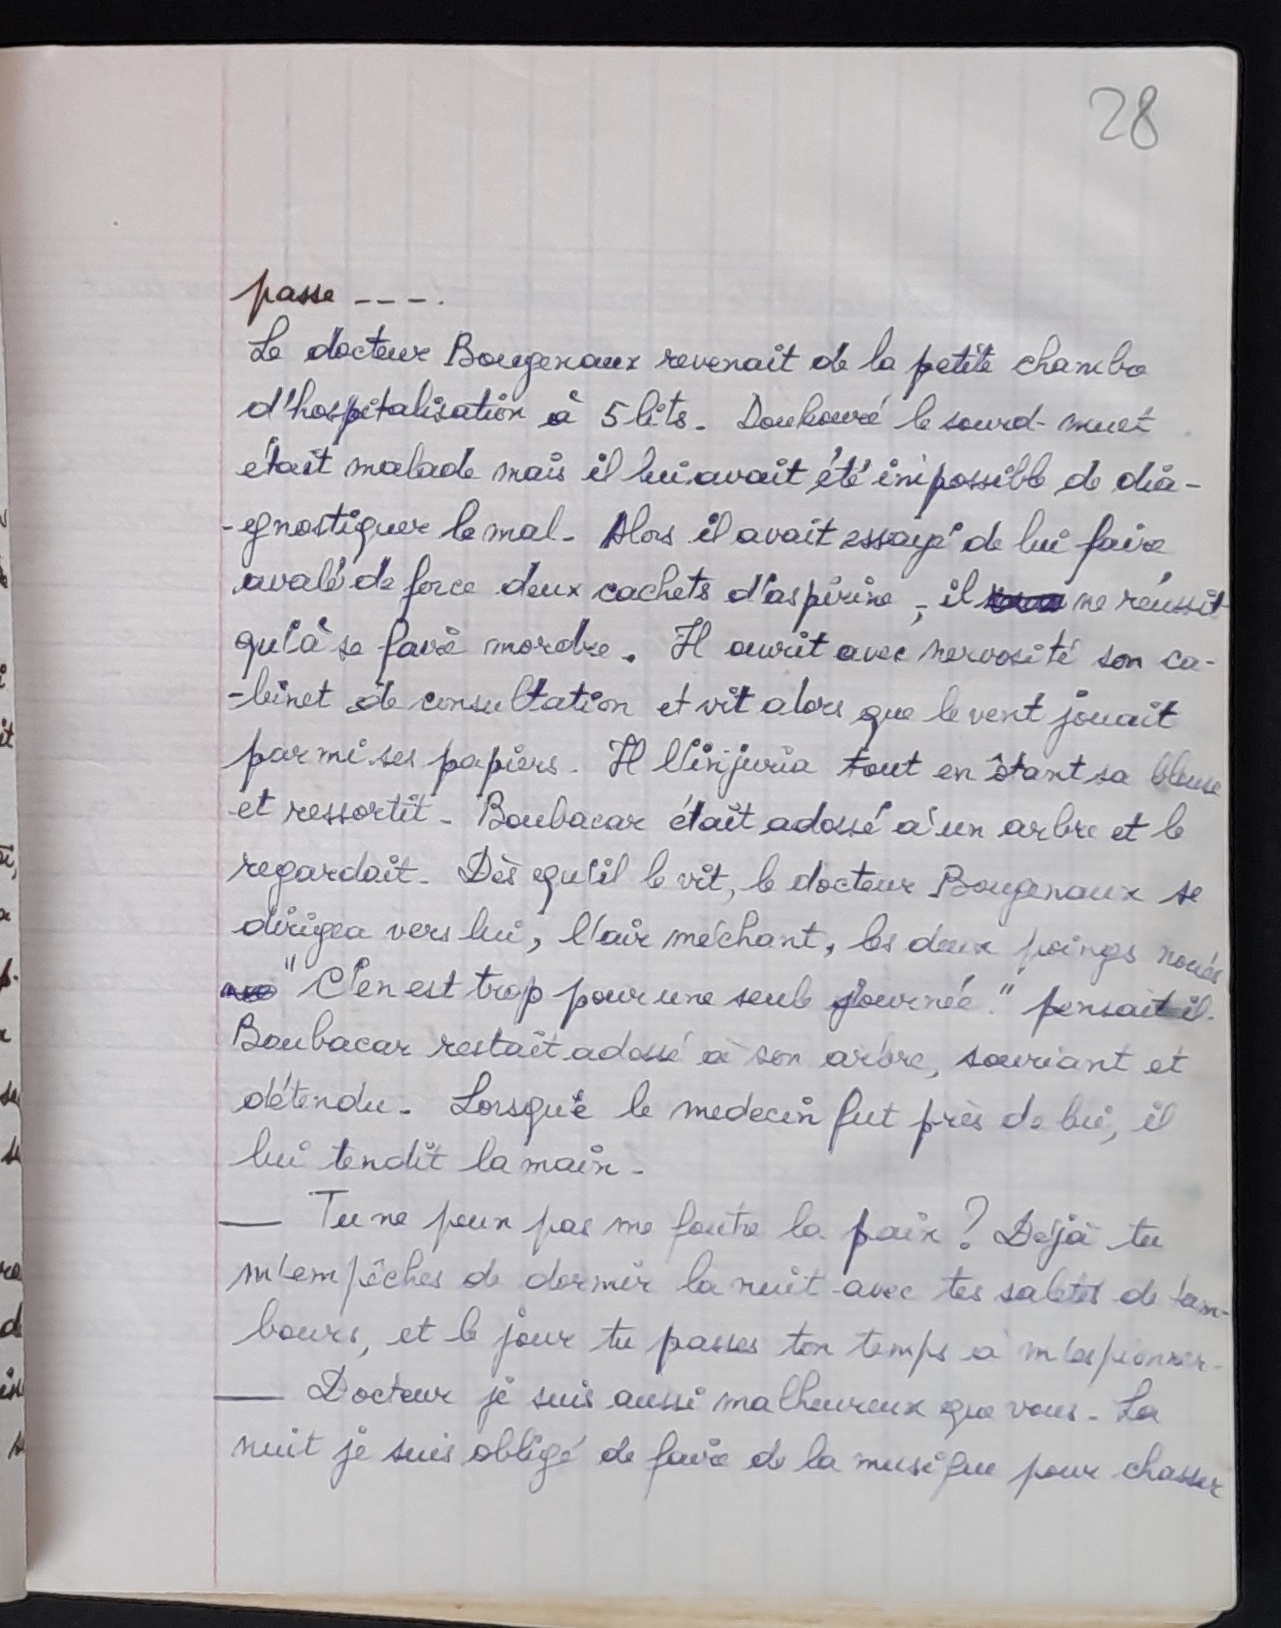 28
passe ---.
Le docteur Bougenaux revenait de la petite chambre
d'hospitalisation à 5 lits. Doukouré le sourd-muet
était malade mais il lui avait été impossible de dia-
-gnostiquer le mal. Alors il avait essayé de lui faire
avalé de force deux cachets d'aspirine, il ne réussit
qu'à se faire mordre. Il ouvrit avec nervosité son ca-
-binet de consultation et vit alors que le vent jouait
parmi ses papiers. Il l'injuria tout en ôtant sa blouse
et ressortit. Boubacar était adossé à un arbre et le
regardait. Dès qu'il le vit, le docteur Bougenaux se
dirigea vers lui, l'air méchant, les deux poings noués
" C'en est trop pour une seule journée." pensait il.
Boubacar restait adossé à son arbre, souriant et
détendu. Lorsque le medecin fut près de lui, il
lui tendit la main.
— Tu ne peux pas me foutre la paix ? Déjà tu
m'empêches de dormir la nuit avec tes saletés de tam-
bours, et le jour tu passes ton temps à m'espionner.
— Docteur je suis aussi malheureux que vous. La
nuit je suis obligé de faire de la musique pour chasser